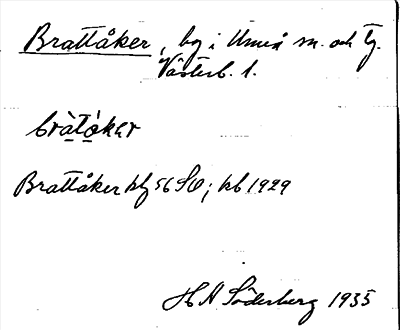 Brattåker, by i Umeå sn. och tg.
Västerb. l.
bràtòkər
Brattåker hfl 56 SO; kb 1929
H N Söderberg 1935